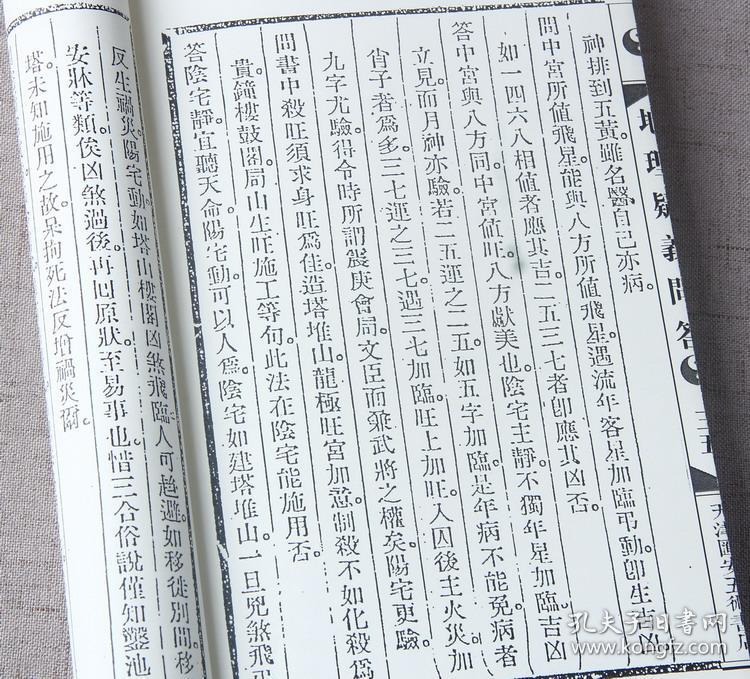 地理疑義問答
三五
神排到五黃。雖名醫自己亦病。
問中宮所值飛星。能與八方所值飛星。遇流年客星加臨弔動。卽生吉凶。
如一四六八相值者應其吉。二五三七者卽應其凶否。
答中宮與八方同。中宮値旺。八方獻美也。陰宅主靜。不獨年星加臨。吉凶
立見。而月神亦驗。若二五運之二五。如五字加臨。是年病不能免。病者
宵子者爲多。三七運之三七。遇三七加臨。旺上加旺。入囚後主火災。加
九字尤驗。得令時所謂震庚會局。文臣而兼武將之權矣。陽宅更驗。
問書中殺旺須求身旺爲佳。造塔堆山。龍極旺宮加意。制殺不如化殺爲
貴。鐘樓鼓閣。局山生旺施工等句。此法在陰宅能施用否。
答陰宅靜。宜聽天命。陽宅動。可以人爲。陰宅如建塔堆山。一旦兇煞飛
反生禍災。陽宅動。如塔山樓閣。凶煞飛臨。人可趨避。如移徙別間。移
安牀等類。俟凶煞過後。再回原狀。至易事也。惜三合俗說。僅知鑿池
塔。未知施用之故。呆拘死法。反增禍災爾。
孔夫子旧书网
kongfz.com